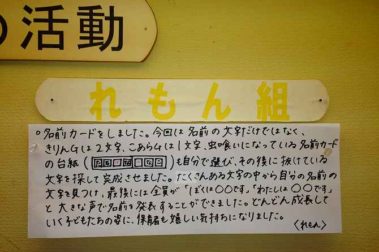 の活動
れもん組
○名前カードをしました。今回は名前の文字だけではなく、
きりんGは2文字、こあらGは1文字、虫喰いになっている名前カード
の台紙()も自分で選び、その後に抜けている
文字を探して完成させました。たくさんある文字の中から自分の名前の
文字を見つけ、最後には全員が"ぼくは〇〇です。""わたしは〇〇です"
と大きな声で名前を発表することができました。どんどん成長して
いく子どもたちの姿に、保育者も嬉しい気持ちになりました。
(れもん)